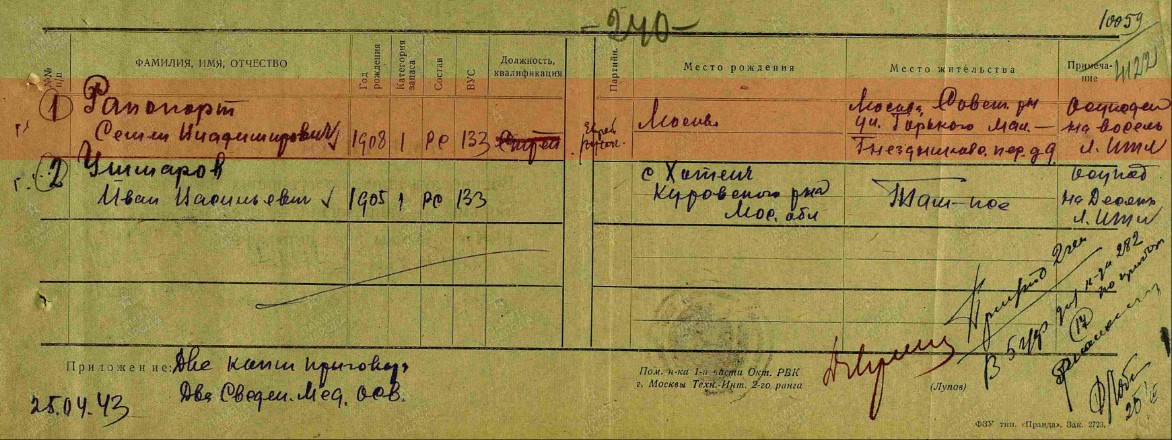 -240-
10059
4122
№№ п/п
ФАМИЛИЯ, ИМЯ, ОТЧЕСТВО
Год рождения
Категория запаса
Состав
ВУС
Должность, квалификация
Партийн.
Место рождения
Место жительства
Примечание
1 Рапопорт
Семен Владимирович 1908 1 РС 133
Москва
Москва, Совет. р-н
ул. Горького Мал.
Гнездниковс. пер. д 9
Осужден
на восемь
л. ИТЛ
2 Ушмаров
Иван Васильевич 1905 1 РС 133
с Хотеич
Куровского р-на
Мос. обл
Там-же
Осужд.
на Десять
л. ИТЛ
Приложение: Две копии приговора
Два Сведен. Мед. осв.
25.04.43
Пом. н-ка 1-й части Окт. РВК
г. Москвы Техн.-Инт. 2-го ранга
(Лупов)
В 5
282
17
ФЗУ тип. «Правда». Зак. 2723.